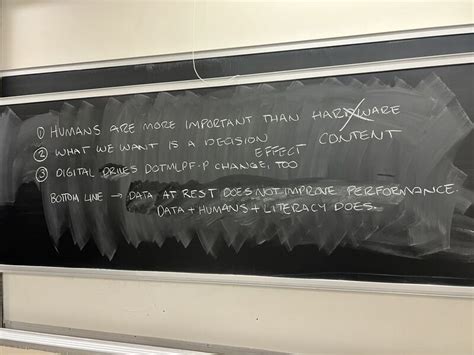 ① HUMANS ARE MORE IMPORTANT THAN HARDWARE
CONTENT
② WHAT WE WANT IS A DECISION
EFFECT
③ DIGITAL DRIVES DOTMLPF-P CHANGE, TOO
BOTTOM LINE → DATA AT REST DOES NOT IMPROVE PERFORMANCE.
DATA + HUMANS + LITERACY DOES.